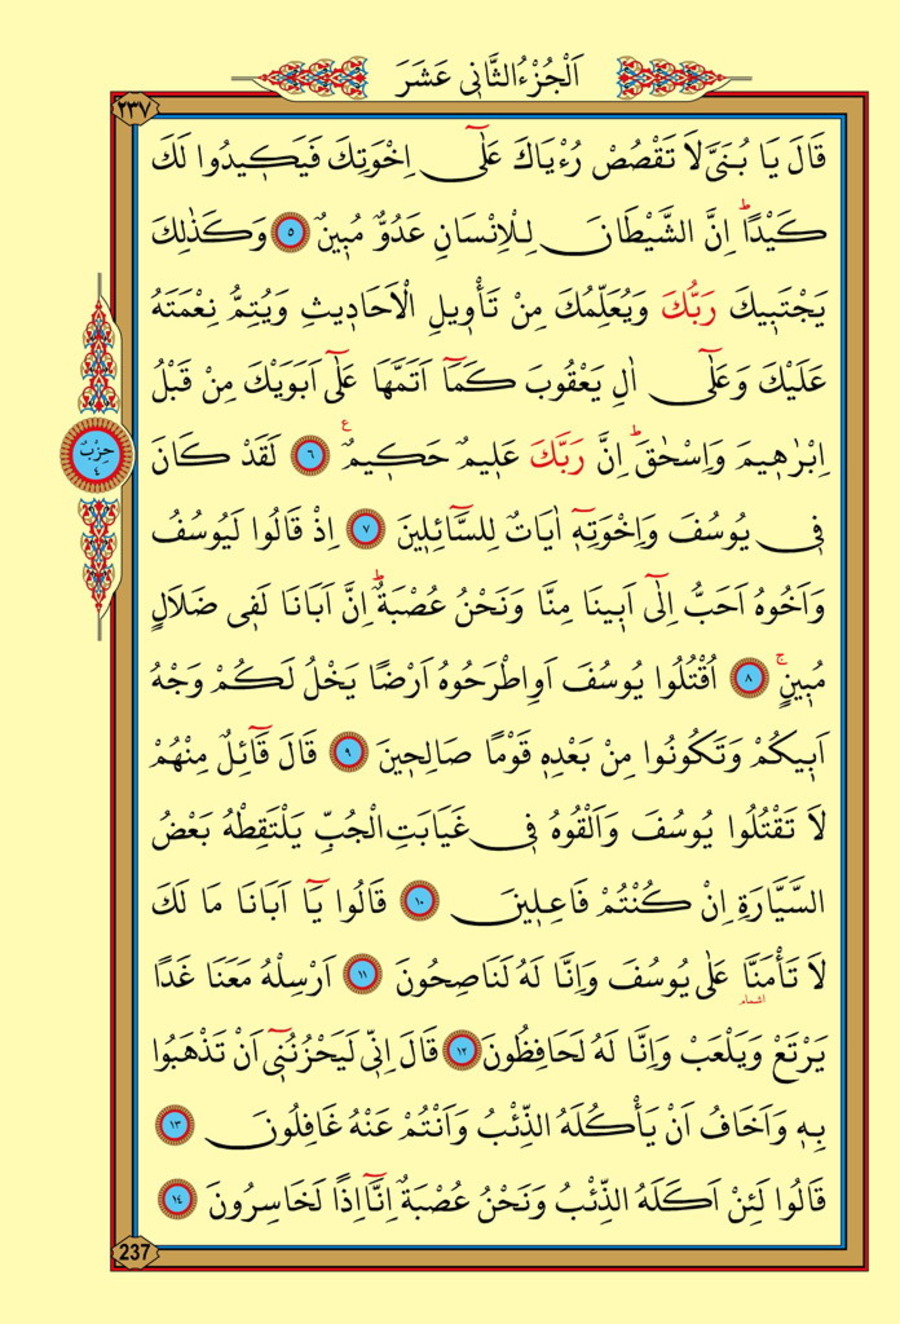 اَلْجُزْءُ الثَّانِي عَشَرَ
٢٣٧
قَالَ يَا بُنَيَّ لَا تَقْصُصْ رُءْيَاكَ عَلٰٓى اِخْوَتِكَ فَيَكِيدُوا لَكَ
كَيْدًاۜ اِنَّ الشَّيْطَانَ لِلْاِنْسَانِ عَدُوٌّ مُبِينٌ ٥ وَكَذٰلِكَ
يَجْتَبِيكَ رَبُّكَ وَيُعَلِّمُكَ مِنْ تَأْوِيلِ الْاَحَادِيثِ وَيُتِمُّ نِعْمَتَهُ
عَلَيْكَ وَعَلٰٓى اٰلِ يَعْقُوبَ كَمَٓا اَتَمَّهَا عَلٰٓى اَبَوَيْكَ مِنْ قَبْلُ
اِبْرٰهِيمَ وَاِسْحٰقَۜ اِنَّ رَبَّكَ عَلِيمٌ حَكِيمٌ ع ٦ لَقَدْ كَانَ
فِي يُوسُفَ وَاِخْوَتِهِٓ اٰيَاتٌ لِلسَّٓائِلِينَ ٧ اِذْ قَالُوا لَيُوسُفُ
وَاَخُوهُ اَحَبُّ اِلٰٓى اَبِينَا مِنَّا وَنَحْنُ عُصْبَةٌۜ اِنَّ اَبَانَا لَفِي ضَلَالٍ
مُبِينٍۚ ٨ اُقْتُلُوا يُوسُفَ اَوِ اطْرَحُوهُ اَرْضًا يَخْلُ لَكُمْ وَجْهُ
اَبِيكُمْ وَتَكُونُوا مِنْ بَعْدِهِ قَوْمًا صَالِحِينَ ٩ قَالَ قَٓائِلٌ مِنْهُمْ
لَا تَقْتُلُوا يُوسُفَ وَاَلْقُوهُ فِي غَيَابَتِ الْجُبِّ يَلْتَقِطْهُ بَعْضُ
السَّيَّارَةِ اِنْ كُنْتُمْ فَاعِلِينَ ١٠ قَالُوا يَٓا اَبَانَا مَا لَكَ
لَا تَأْمَنَّا عَلٰى يُوسُفَ وَاِنَّا لَهُ لَنَاصِحُونَ ١١ اَرْسِلْهُ مَعَنَا غَدًا
اشمام
يَرْتَعْ وَيَلْعَبْ وَاِنَّا لَهُ لَحَافِظُونَ ١٢ قَالَ اِنِّي لَيَحْزُنُنِٓي اَنْ تَذْهَبُوا
بِهِ وَاَخَافُ اَنْ يَأْكُلَهُ الذِّئْبُ وَاَنْتُمْ عَنْهُ غَافِلُونَ ١٣
قَالُوا لَئِنْ اَكَلَهُ الذِّئْبُ وَنَحْنُ عُصْبَةٌ اِنَّٓا اِذًا لَخَاسِرُونَ ١٤
حِزْبٌ
٤
237